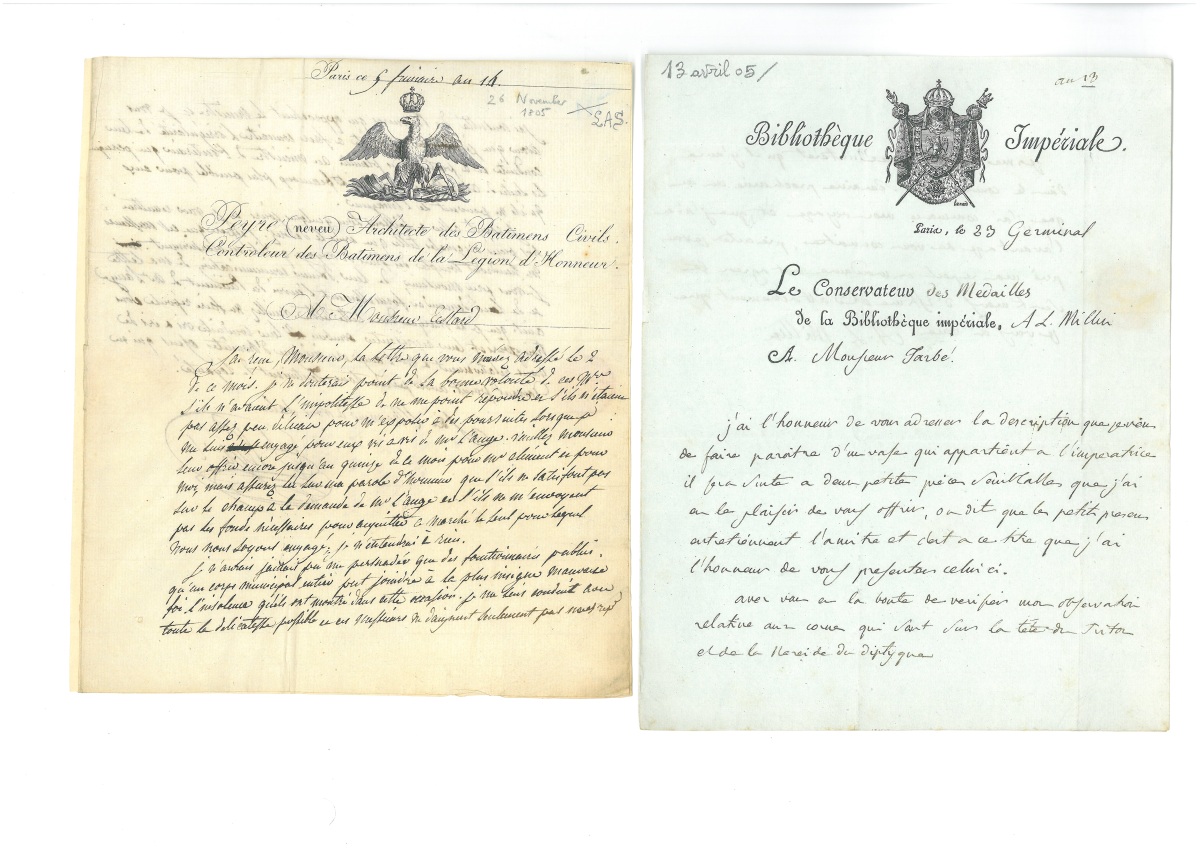 Paris ce 5 frimaire an 14.
26 November
1805
LAS.
Peyre (neveu) Architecte des Batimens Civils.
Controleur des Batimens de la Légion d'Honneur.
A Monsieur
J'ai reçu, Monsieur, la lettre que vous m'avez adressé le 2
de ce mois. je ne douterais point de la bonne volonté de ces Mrs
s'ils n'avaient l'impolitesse de ne me point repondre et s'ils n'étaient
pas assez peu délicats pour m'exposer à des poursuites lorsque je
me suis engagé pour eux vis a vis de Mr l'ange. veuillez monsieur
leur offrir encore jusqu'au quinze de ce mois pour et pour
moi, mais assurez les sur ma parole d'honneur que s'ils ne satisfont pas
sur le champ à la demande de Mr l'ange et s'ils ne m'envoyent
pas les fonds nécessaires pour acquitter le marché le seul pour lequel
nous nous soyons engagé, je n'entendrai à rien.
je n'aurais jamais pu me persuader que des fonctionnaires publics.
qu'un corps municipal entier put joindre à la plus insigne mauvaise
foi l'insolence qu'ils ont montré dans cette occasion. je me suis conduit avec
toute la délicatesse possible et ces messieurs ne daignent seulement pas
13 avril 05/
an 13
Bibliothèque Impériale.
Paris, le 23 Germinal
Le Conservateur des Médailles
de la Bibliothèque impériale, A L. Millin
A Monsieur Tarbé.
j'ai l'honneur de vous adresser la description que je viens
de faire paraître d'un vase qui appartient a l'imperatrice
il fera suite a deux petites pièces semblables que j'ai
eu le plaisir de vous offrir, on dit que les petits presens
entretiennent l'amitié et c'est a ce titre que j'ai
l'honneur de vous presenter celui ci.
avez vous eu la bonté de verifier mon observation
relative aux cornes qui sont sur la tête du Triton
et de la Nereide du diptyque